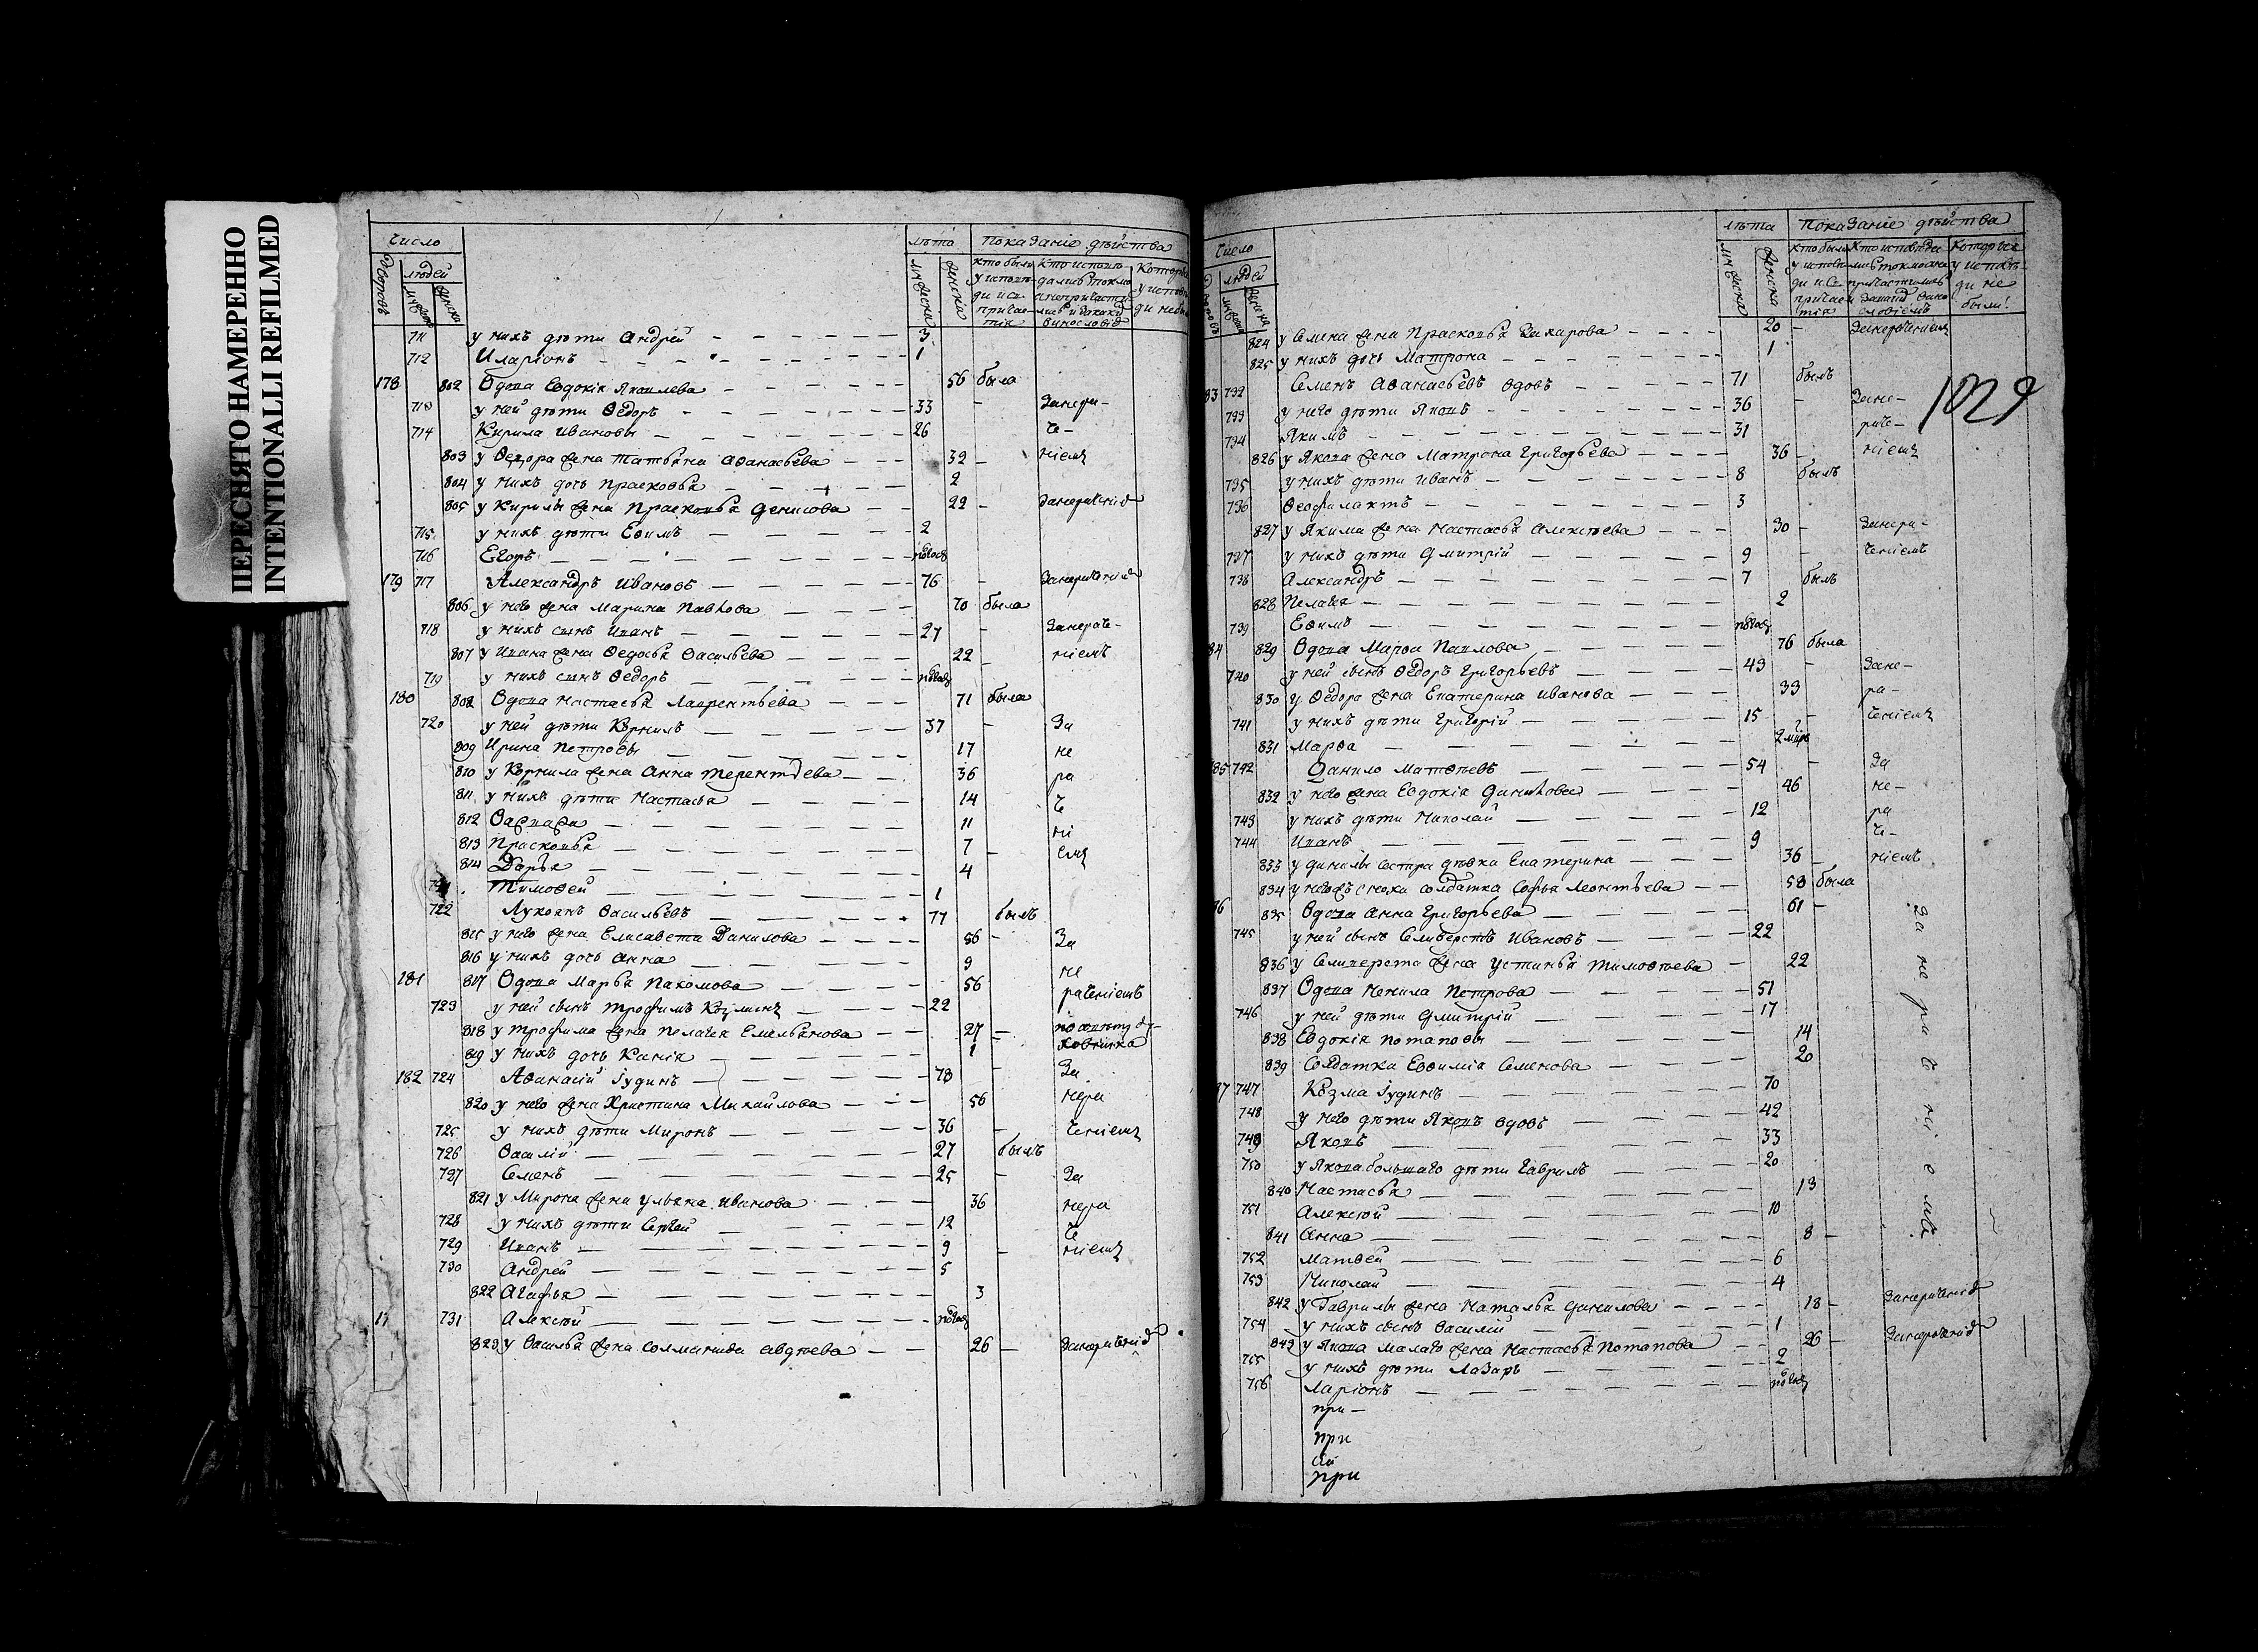 ПЕРЕСНЯТО НАМЕРЕННО
INTENTIONALLI REFILMED
число
лѣта показаніе дѣйства
дворовъ людей
мужеска женска
711 у нихъ дѣти Андрей 3
712 Иларіонъ 1
178 802 Вдова Евдокія Яковлева 56 была
713 у ней дѣти Ѳедоръ 33 занера-
714 Кирила Ивановы 26 че-
803 у Ѳедора жена Татьяна Аѳанасьева 32 ніемъ
804 у нихъ дочь Прасковья 2
805 у Кирилы жена Прасковья Денисова 22
715 у нихъ дѣти Еѳимъ 2
716 Егоръ полгод
179 717 Александръ Ивановъ 76
806 у него жена Марина Павлова 70 была
718 у нихъ сынъ Иванъ 27 занераче-
807 у Ивана жена Ѳедосья Васильева 22 ніемъ
719 у нихъ сынъ Ѳедоръ полгод
180 808 Вдова Настасья Лаврентьева 71 была
720 у ней дѣти Корнилъ 37 За
809 Ирина Петровы 17 не
810 у Корнила жена Анна Терентьева 36 ра
811 у нихъ дѣти Настасья 14 че
812 Варвара 11 ні
813 Прасковья 7 емъ
814 Дарья 4
721 Тимоѳей 1
722 Лукоянъ Васильевъ 77 былъ
815 у него жена Елисавета Данилова 56 За
816 у нихъ дочь Анна 9 не
181 817 Вдова Марья Пахомова 56 раченіемъ
723 у ней сынъ Трофимъ Козминъ 22
818 у Трофима жена Пелагея Емельянова 27 по совѣту ду-
819 у нихъ дочь Ксенія 1 ховника
182 724 Аѳанасій Іудинъ 78 За
820 у него жена Христина Михайлова 56 нера
725 у нихъ дѣти Миронъ 36 ченіемъ
726 Василій 27 былъ
727 Семенъ 25 За
821 у Мирона жена Ульяна Иванова 36 нера
728 у нихъ дѣти Сергей 12 че
729 Иванъ 9 ніемъ
730 Андрей 5
822 Агафья 3
731 Алексѣй полгод
823 у Василья жена Соломанида Авдѣева 26
число
лѣта показаніе дѣйства
людей
мужеска женска
824 у Семена жена Прасковья Захарова 20 занераченіемъ
825 у нихъ дочь Матрона 1
83 732 Семенъ Аѳанасьевъ вдовъ 71 былъ
1029
733 у него дѣти Яковъ 36 зане-
734 Якимъ 31 раче-
826 у Якова жена Матрона Григорьева 36 ніемъ
735 у нихъ дѣти Иванъ 8 былъ
736 Ѳеофилактъ 3
827 у Якима жена Настасья Алексѣева 30 занера-
737 у нихъ дѣти Дмитрій 9 ченіемъ
738 Александръ 7 былъ
828 Пелагея 2
739 Еѳимъ полгод
84 829 Вдова Марѳа Павлова 76 была
740 у ней сынъ Ѳедоръ Григорьевъ 43 зане-
830 у Ѳедора жена Екатерина Иванова 33 ра-
741 у нихъ дѣти Григорій 15 ченіемъ
831 Марѳа
85 742 Данило Матѳѣевъ 54 За
832 у него жена Евдокія Данилова 46 не-
743 у нихъ дѣти Николай 12 ра
744 Иванъ 9 че-
833 у Данилы сестра дѣвка Екатерина 36 ніемъ
834 у него жъ сноха солдатка Софья Леонтьева 53 была
86 835 Вдова Анна Григорьева 61
745 у ней сынъ Селиверстъ Ивановъ 22
836 у Селиверста жена Устинья Тимоѳѣева 22
837 Вдова Ненила Петрова 51
746 у ней дѣти Дмитрій 17
838 Евдокія Потаповы 14
839 Солдатка Евѳимія Семенова 20
87 747 Козма Іудинъ 70
748 у него дѣти Яковъ вдовъ 42
749 Яковъ 33
750 у Якова большаго дѣти Гаврилъ 20
840 Настасья 13
751 Алексѣй 10
841 Анна 8
752 Матѳей 6
753 Николай 4
За не ра че ні е мъ
842 у Гаврилы жена Наталья Данилова 18
754 у нихъ сынъ Василій 1
843 у Якова малаго жена Настасья Потапова 26
755 у нихъ дѣти Лазарь 2
756 Ларіонъ полгод
при-
при
при